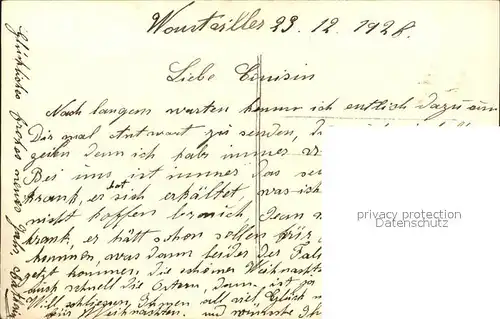 Woustviller 23. 12. 1928.
Liebe Cousin
Nach langem warten komme ich entlich dazu um
Dir mal Antwort zu senden,
geben denn ich hab immer
Bei uns ist immer das
krank, er hat sich erkältet, was ich
nicht hoffen Jean
krank, er hätt schon sollen für
kommen, was dann beides der Fall
jetzt kommen, die schönen Weihnachts
auch schnell die Ostern, dann ist
Will schliessen, Ihnen all viel Glück
für Weihnachten. und wünsche
Glückliches frohes neues Jahr,
privacy protection
Datenschutz